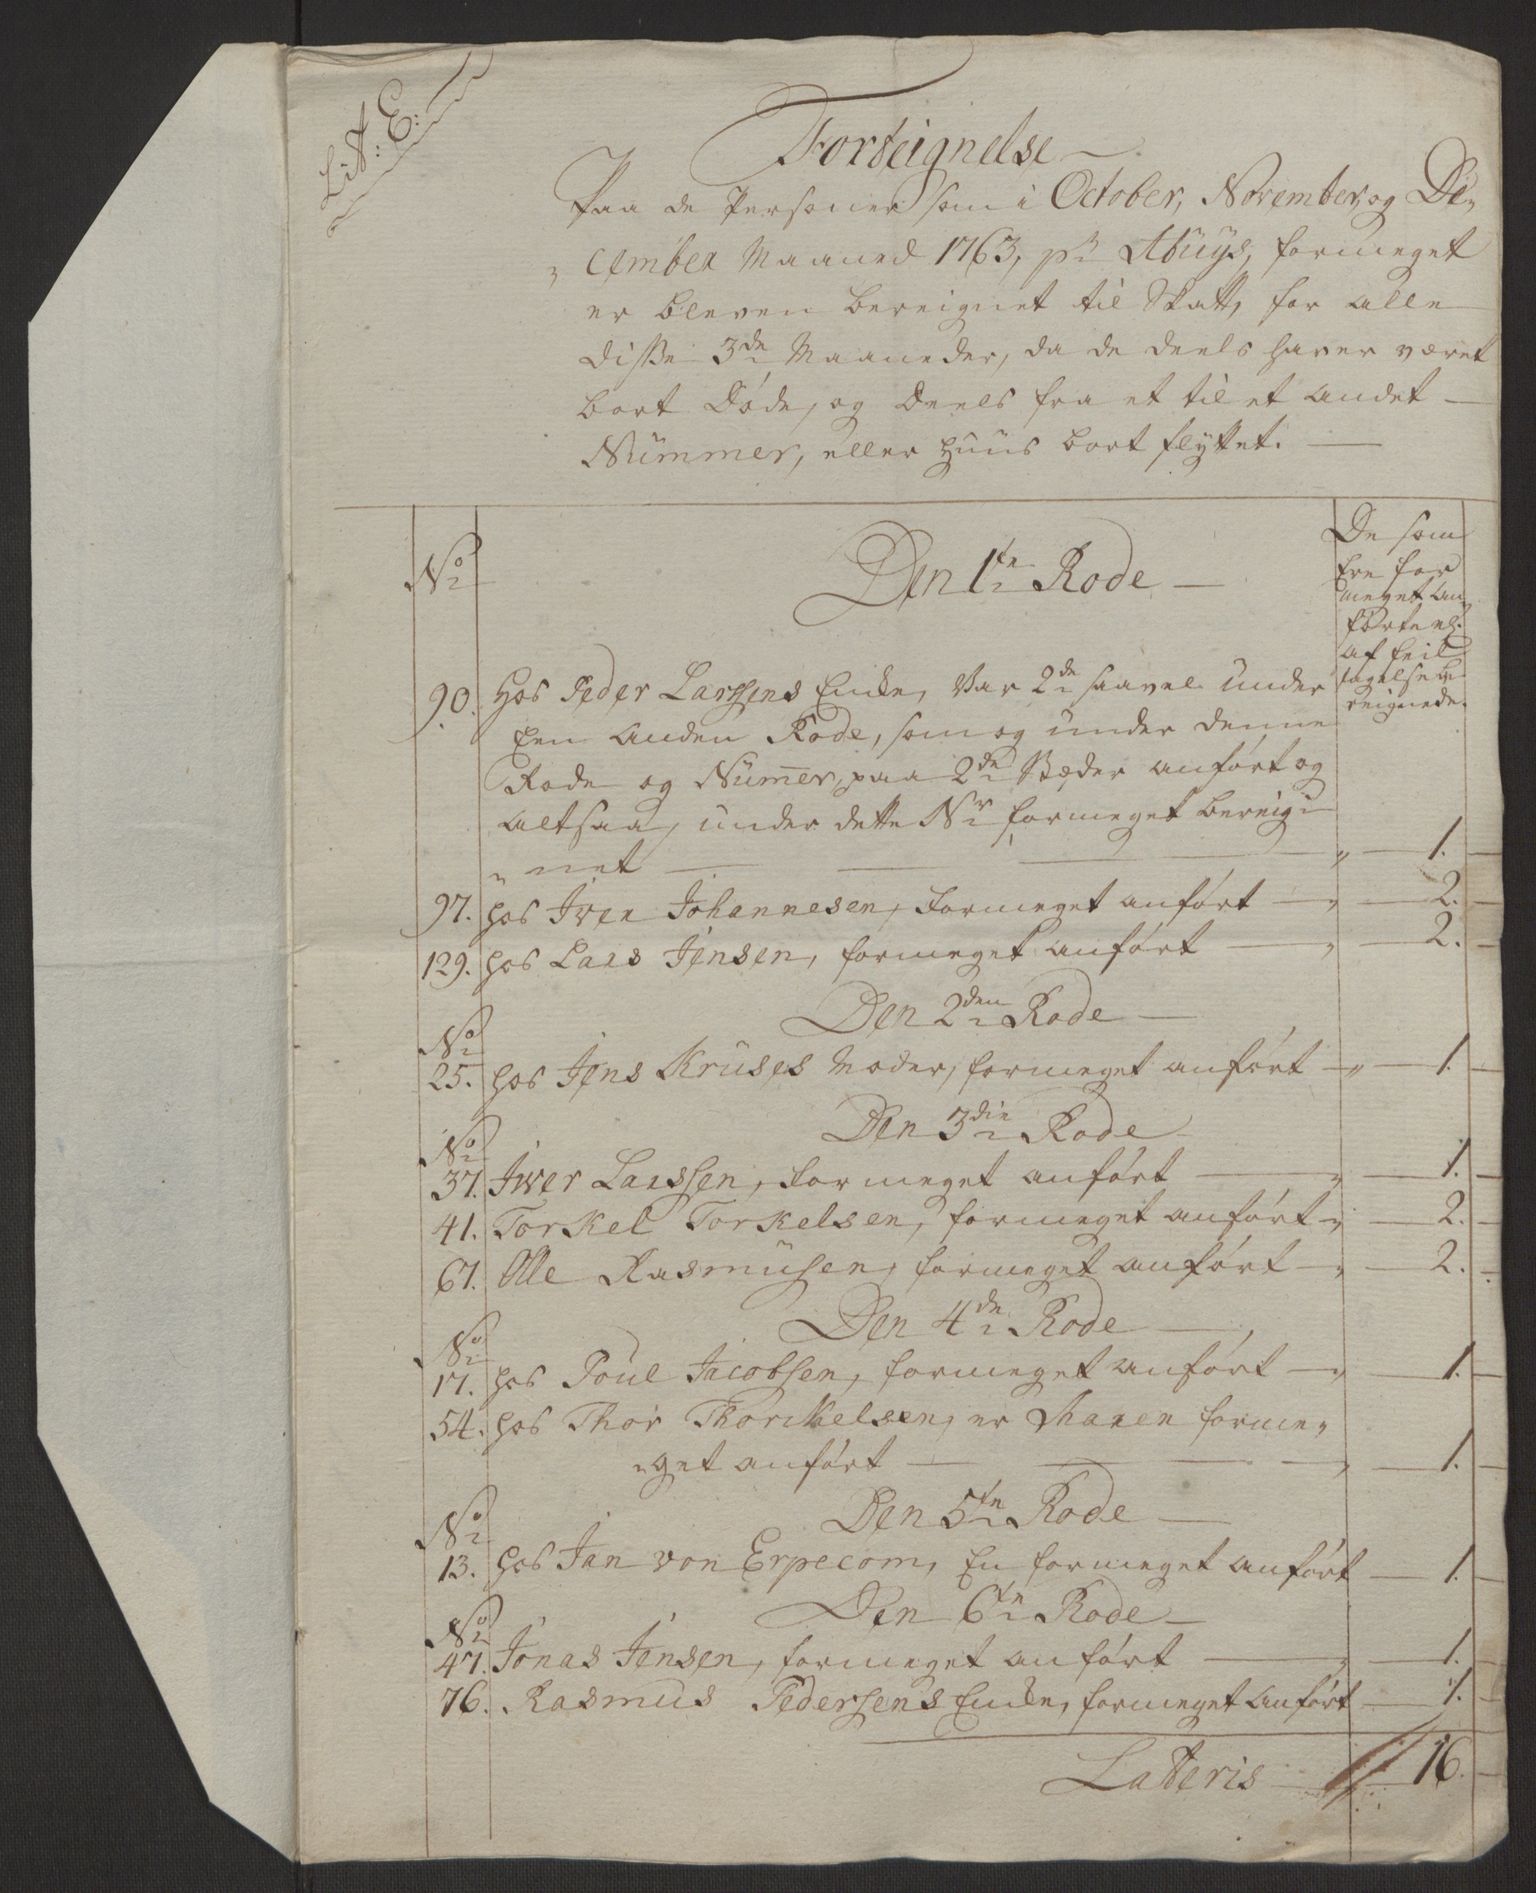 Lit: E:
Forteignelse
Paa de Personer som i October, November, og De-
cember Maaned 1763, pr Abuys, formeget
er bleven bereignet til Skatt, for alle
disse 3de Maaneder, da de deels haver været
bort Døde, og deels fra et til et andet
Nummer, eller Huus bort flyttet.
No
Den 1te Rode
De som
Ere for
meget an
førte el:
af feil
tagelse be
reignede.
90. Hos Peder Larssens Enke, Var 2de saavel under
Een anden Rode, som og under denne
Rode og Numer, paa 2de Stæder anført og
altsaa, under dette Nr formeget bereig-
net 1.
97. hos Iver Johannesen, formeget anført 2.
129. hos Lars Jensen, formeget anført 2.
Den 2den Rode
No
25. hos Jens Kruses Moder, formeget anført 1.
Den 3die Rode
No
37. Iwer Larssen, for meget anført 1.
41. Torkel Torkelsen, formeget anført 2.
67. Olle Rasmusen, formeget anført 2.
Den 4de Rode
No
17. hos Poul Jacobsen, formeget anført 1.
54. hos Thor Thorckelsen, er forme-
get anført 1.
Den 5te Rode
No
13. hos Jan von Erpecom, En formeget anført 1.
Den 6te Rode
No
47. Jonas Jensen, formeget anført 1.
76. Rasmus Pedersens Enke, formeget anført 1.
Latteris 16.